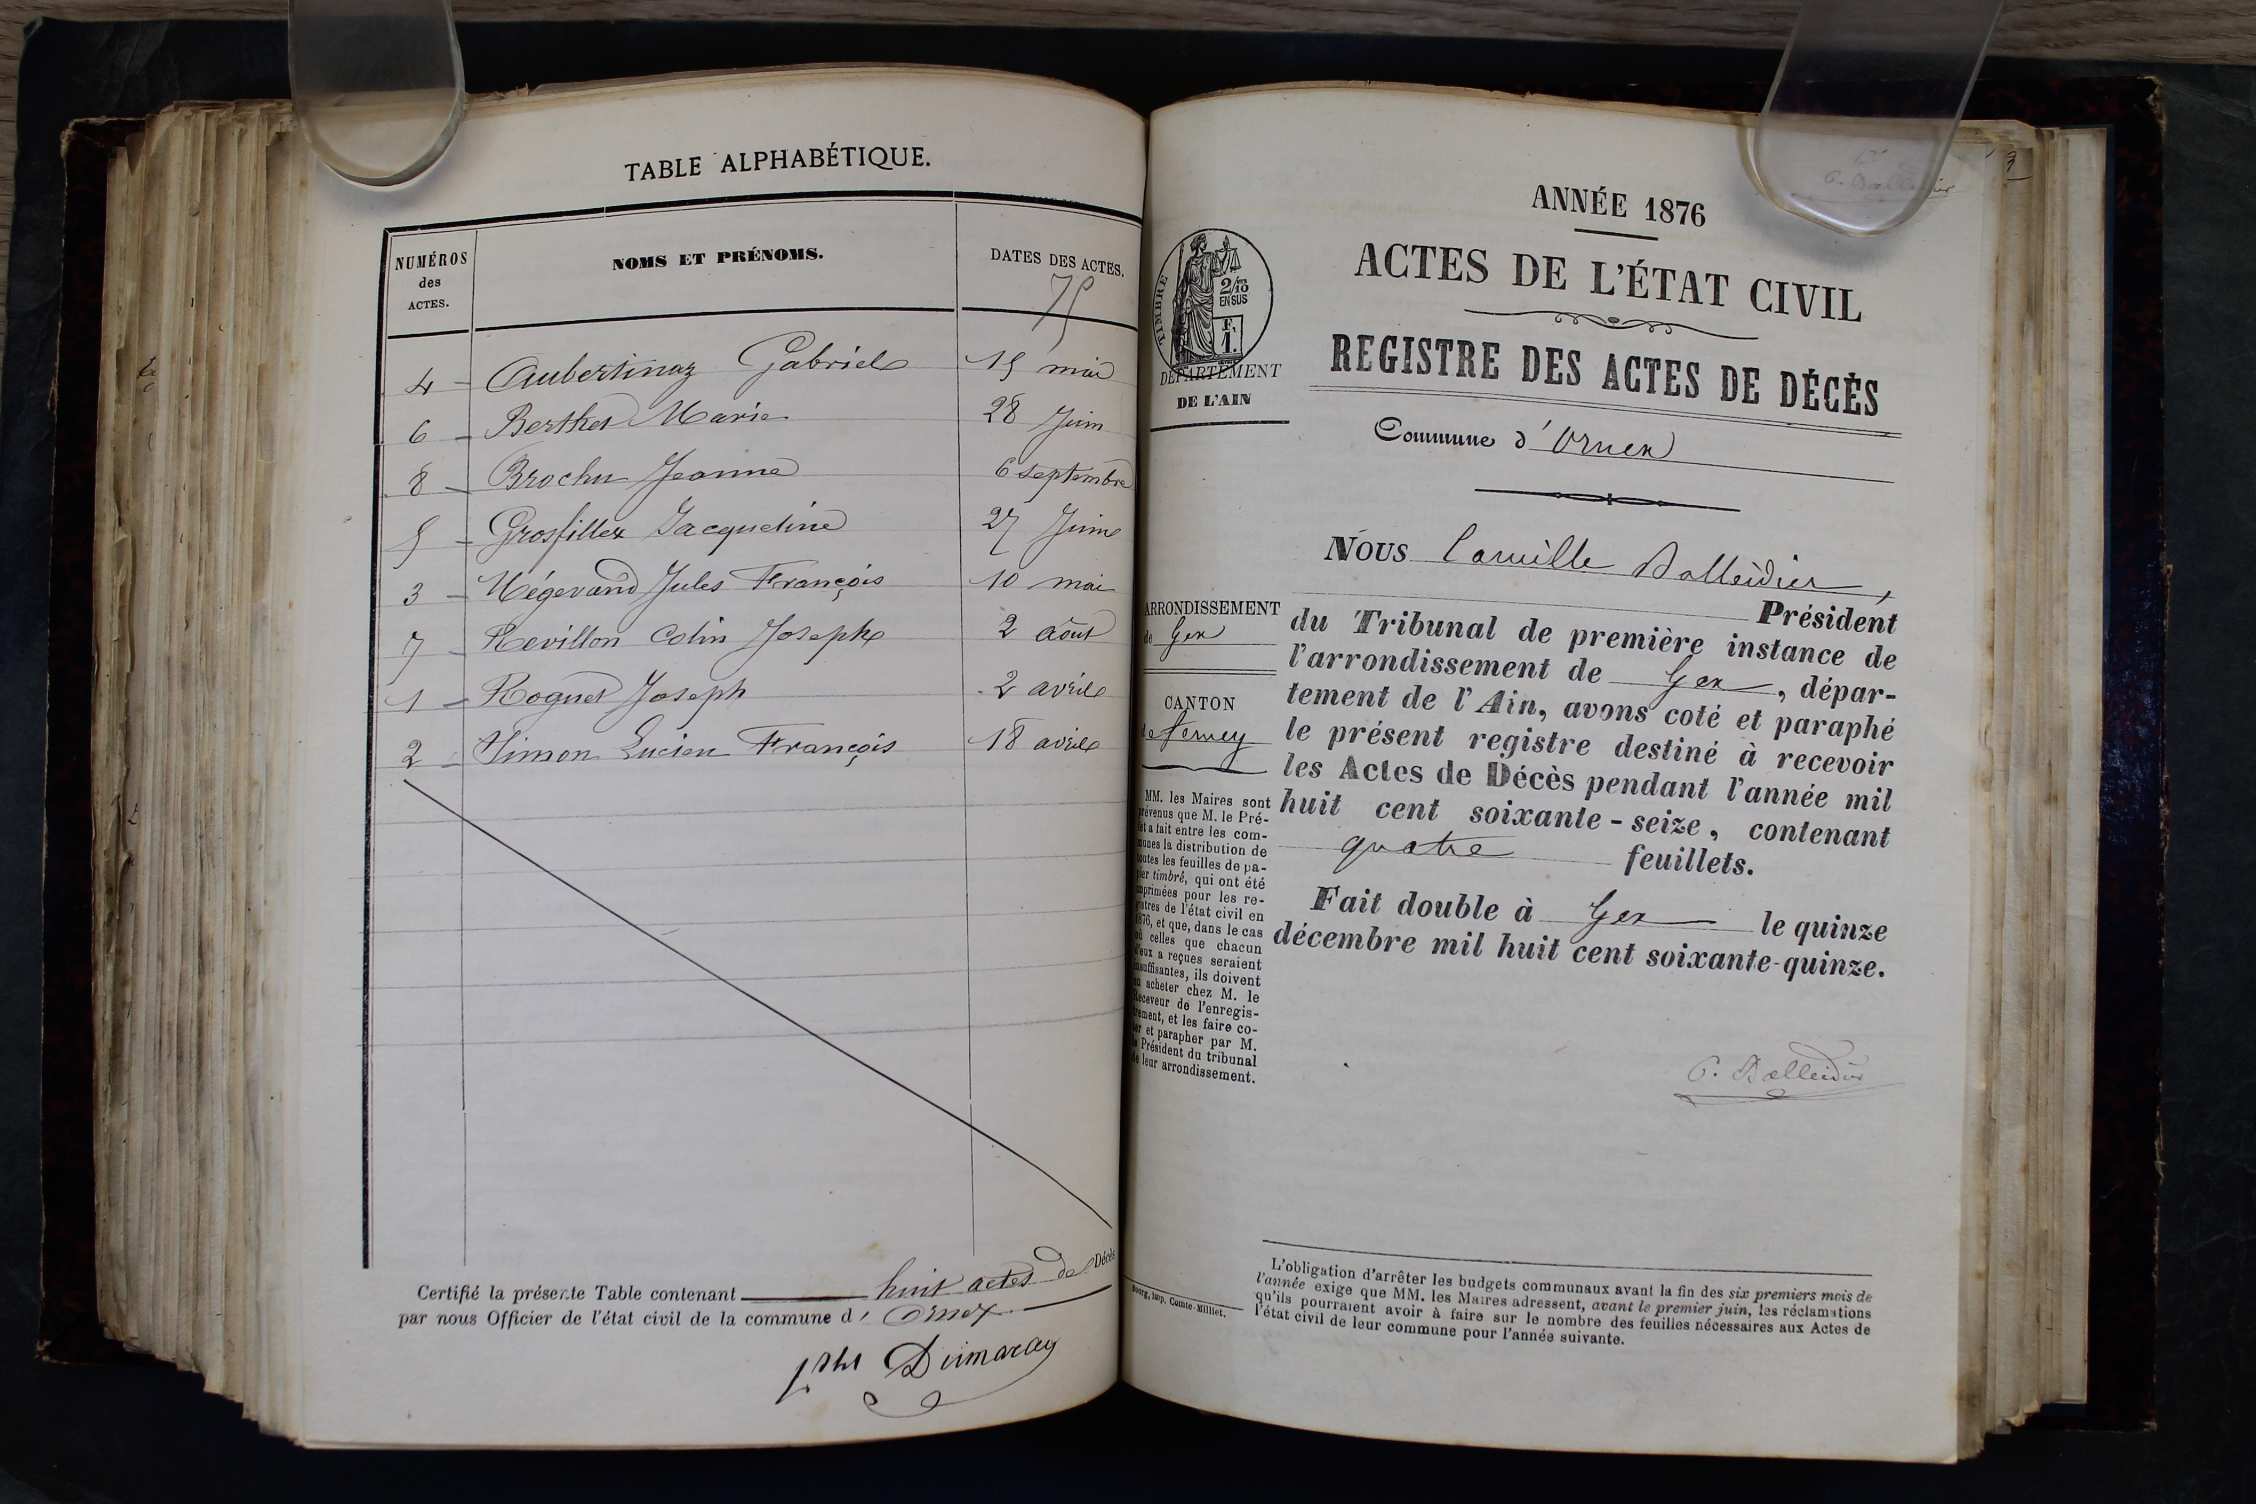 TABLE ALPHABÉTIQUE.
NUMÉROS
des
ACTES.
NOMS ET PRÉNOMS.
DATES DES ACTES.
75
4 - Aubertinaz Gabriel 15 mai
6 - Berthet Marie 28 Juin
8 - Brochu Jeanne 6 septembre
5 - Grosfillex Jacqueline 27 Juin
3 - Mégevand Jules François 10 mai
7 - Revillon Colin Joseph 2 août
1 - Roguet Joseph 2 avril
2 - Simon Lucien François 18 avril
Certifié la présente Table contenant huit actes de Décès
par nous Officier de l'état civil de la commune d' Ornex
ANNÉE 1876
ACTES DE L'ÉTAT CIVIL
REGISTRE DES ACTES DE DÉCÈS
TIMBRE
2/10
EN SUS
F.
1.
DÉPARTEMENT
DE L'AIN
Commune d'Ornex
Nous Camille Balleidier,
ARRONDISSEMENT
de Gex
CANTON
de Ferney
MM. les Maires sont
prévenus que M. le Pré-
fet a fait entre les com-
munes la distribution de
toutes les feuilles de pa-
pier timbré, qui ont été
imprimées pour les re-
gistres de l'état civil en
1876, et que, dans le cas
où celles que chacun
d'eux a reçues seraient
insuffisantes, ils doivent
en acheter chez M. le
Receveur de l'enregis-
trement, et les faire co-
ter et parapher par M.
le Président du tribunal
de leur arrondissement.
Président
du Tribunal de première instance de
l'arrondissement de Gex, dépar-
tement de l'Ain, avons coté et paraphé
le présent registre destiné à recevoir
les Actes de Décès pendant l'année mil
huit cent soixante-seize, contenant
quatre feuillets.
Fait double à Gex le quinze
décembre mil huit cent soixante-quinze.
C. Balleidier
L'obligation d'arrêter les budgets communaux avant la fin des six premiers mois de
l'année exige que MM. les Maires adressent, avant le premier juin, les réclamations
qu'ils pourraient avoir à faire sur le nombre des feuilles nécessaires aux Actes de
l'état civil de leur commune pour l'année suivante.
Bourg, imp. Comte-Milliet.